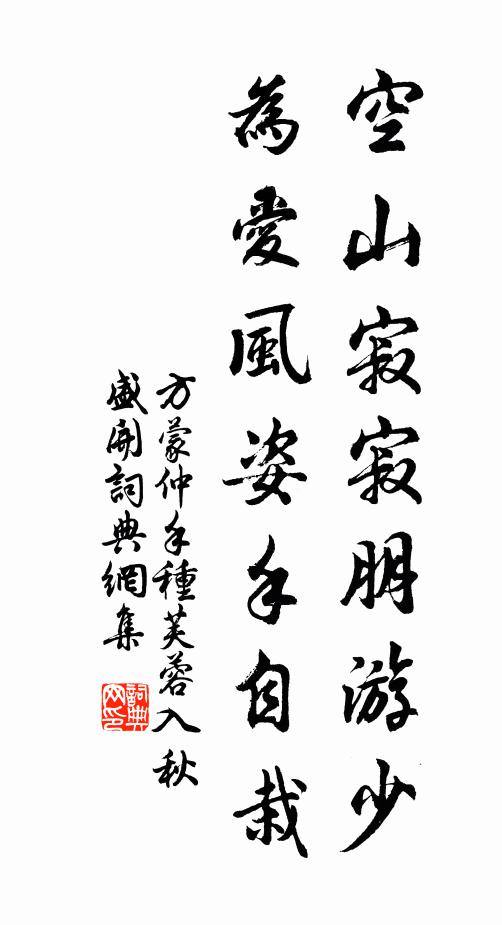 空山寂寂朋游少
為愛風姿手自栽
方蒙仲手種芙蓉入秋
盛開詞典網集
詞典網印